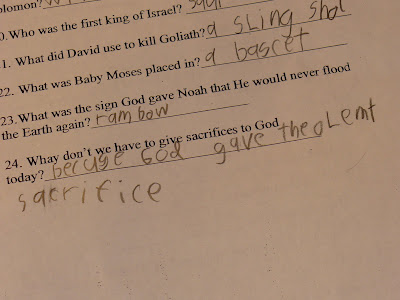 olomon?
0. Who was the first king of Israel? Saul
1. What did David use to kill Goliath? a sling shot
22. What was Baby Moses placed in? a bascet
23. What was the sign God gave Noah that He would never flood
the Earth again? rambow
24. Whay don't we have to give sacrifices to God
today? becuse God gave the oLemt
sacrifice